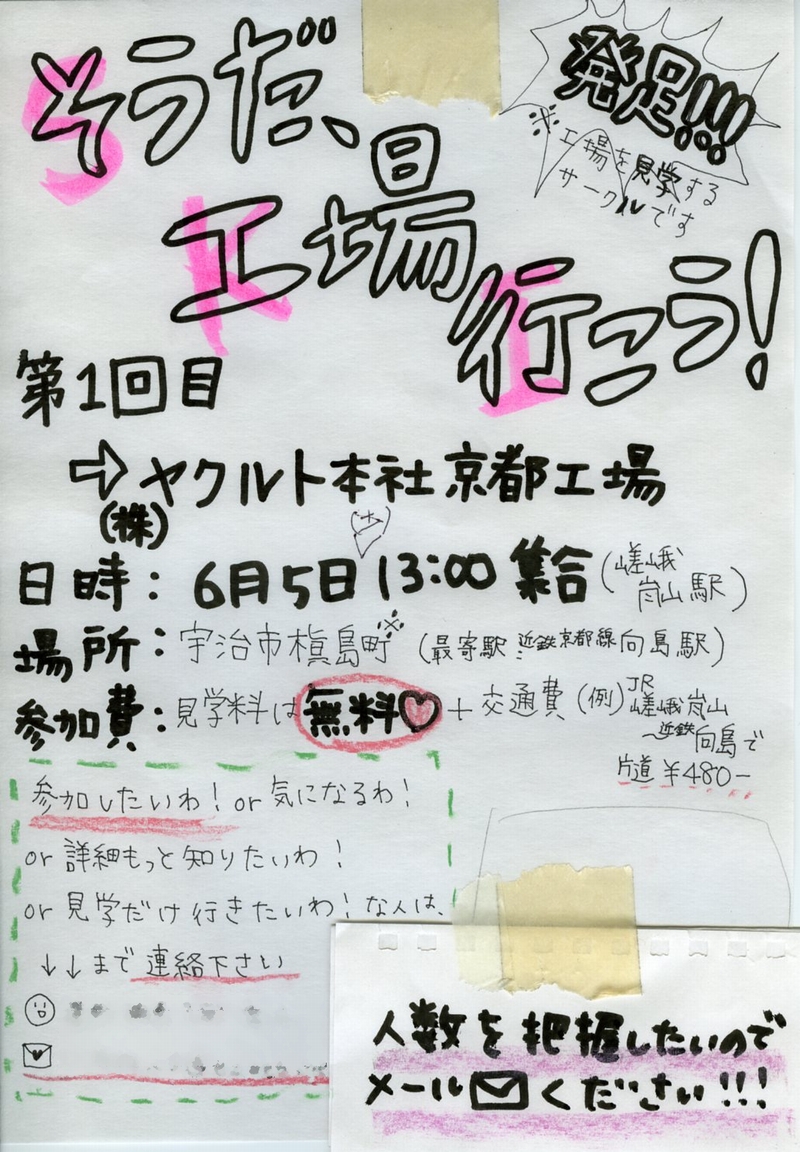 そうだ、
工場
行こう!
S
K
I
発足!!!
※工場を見学する
サークルです
第1回目
⇨ヤクルト本社京都工場
(株)
日時: 6月5日 13:00 集合 (嵯峨嵐山駅)
(水)
場所: 宇治市槇島町※ (最寄駅: 近鉄京都線向島駅)
参加費: 見学料は無料♡ + 交通費 (例) JR
嵯峨嵐山
〜近鉄向島で
片道 ¥480-
参加したいわ! or 気になるわ!
or 詳細もっと知りたいわ!
or 見学だけ行きたいわ! な人は、
↓↓まで連絡下さい
人数を把握したいので
メール✉ください!!!